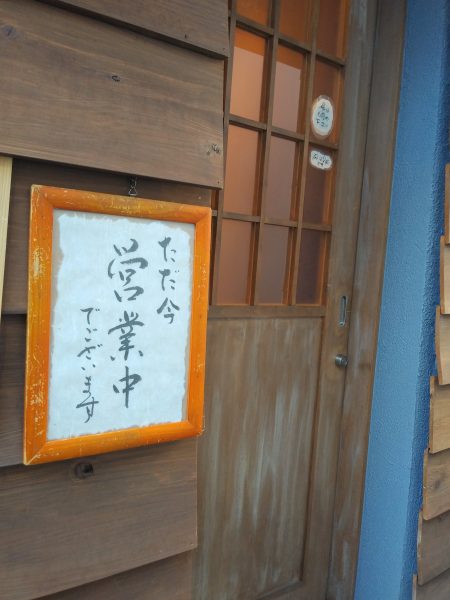 ただ今
営業中
でございます